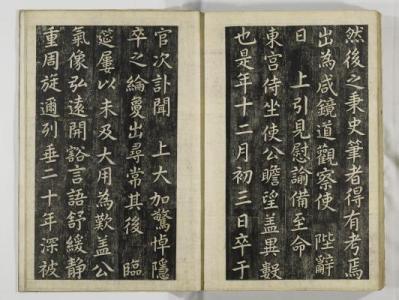 然後之秉史筆者得有考焉
出為咸鏡道觀察使 陛辭
日 上引見慰諭備至命
東宮侍坐使公瞻望盖異數
也是年十二月初三日卒于
官次訃聞 上大加驚悼隱
卒之綸夐出尋常其後 臨
筵屢以未及大用為歎盖公
氣像弘遠開豁言語舒緩靜
重周旋邇列垂二十年深被